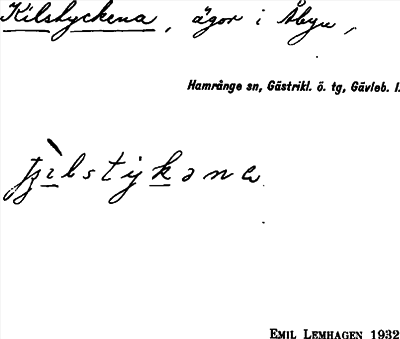 Kilstyckena, ägor i Åbyn,
Hamrånge sn, Gästrikl. ö. tg, Gävleb. l.
EMIL LEMHAGEN 1932